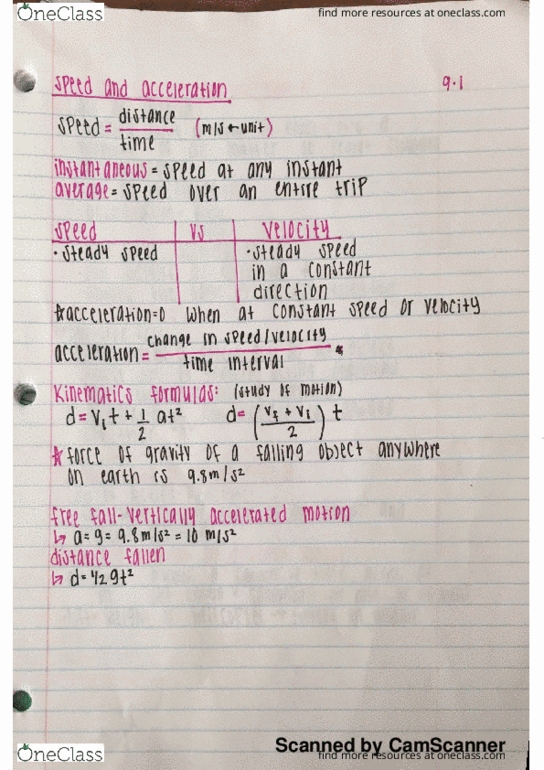 OneClass
find more resources at oneclass.com
speed and acceleration 9.1
speed = distance / time (m/s ← unit)
instantaneous = speed at any instant
average = speed over an entire trip
speed vs velocity
• steady speed • steady speed
in a constant
direction
*acceleration=0 when at constant speed or velocity
acceleration = change in speed/velocity / time interval *
Kinematics formulas: (study of motion)
d = V₁t + 1/2 at² d= (V₂ + V₁ / 2) t
* force of gravity of a falling object anywhere
on earth is 9.8m/s²
free fall - vertically accelerated motion
↳ a = g = 9.8m/s² = 10 m/s²
distance fallen
↳ d = 1/2 gt²
Scanned by CamScanner
OneClass
find more resources at oneclass.com